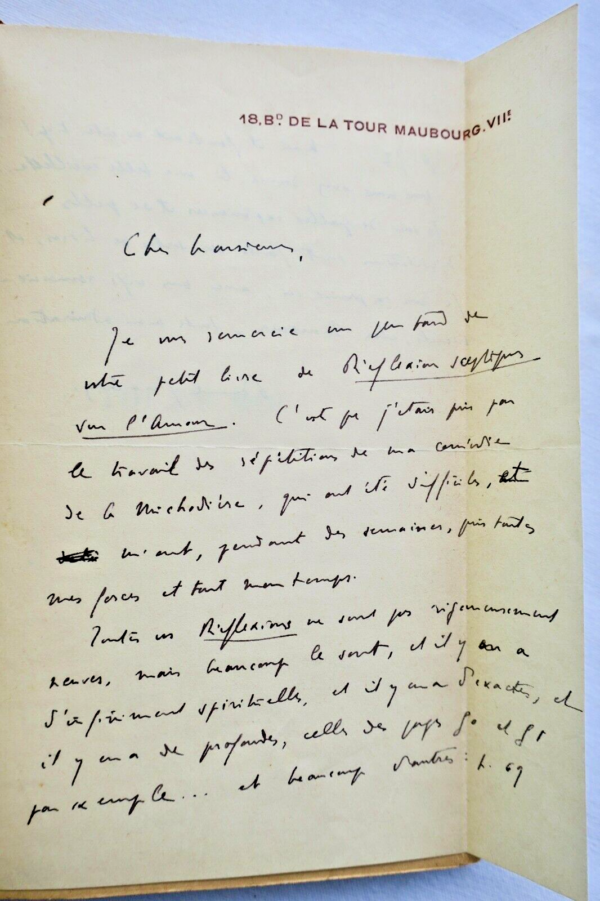 18, Bᴰ. DE LA TOUR MAUBOURG. VIIᴱ
Cher Monsieur,
Je vous remercie un peu tard de
votre petit livre de Réflexions sceptiques
sur l'Amour. C'est que j'étais pris par
le travail des répétitions de ma comédie
de la Michodière, qui ont été difficiles, et
m'ont, pendant des semaines, pris toutes
mes forces et tout mon temps.
Toutes vos Réflexions ne sont pas rigoureusement
neuves, mais beaucoup le sont, et il y en a
d'infiniment spirituelles, et il y en a d'exactes, et
il y en a de profondes, celles des pages 90 et 91
par exemple... et beaucoup d'autres : p. 69